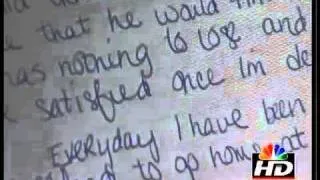 that he would
has nothing to lose and
satisfied once I'm de
Everyday I have been
to go home at
HD